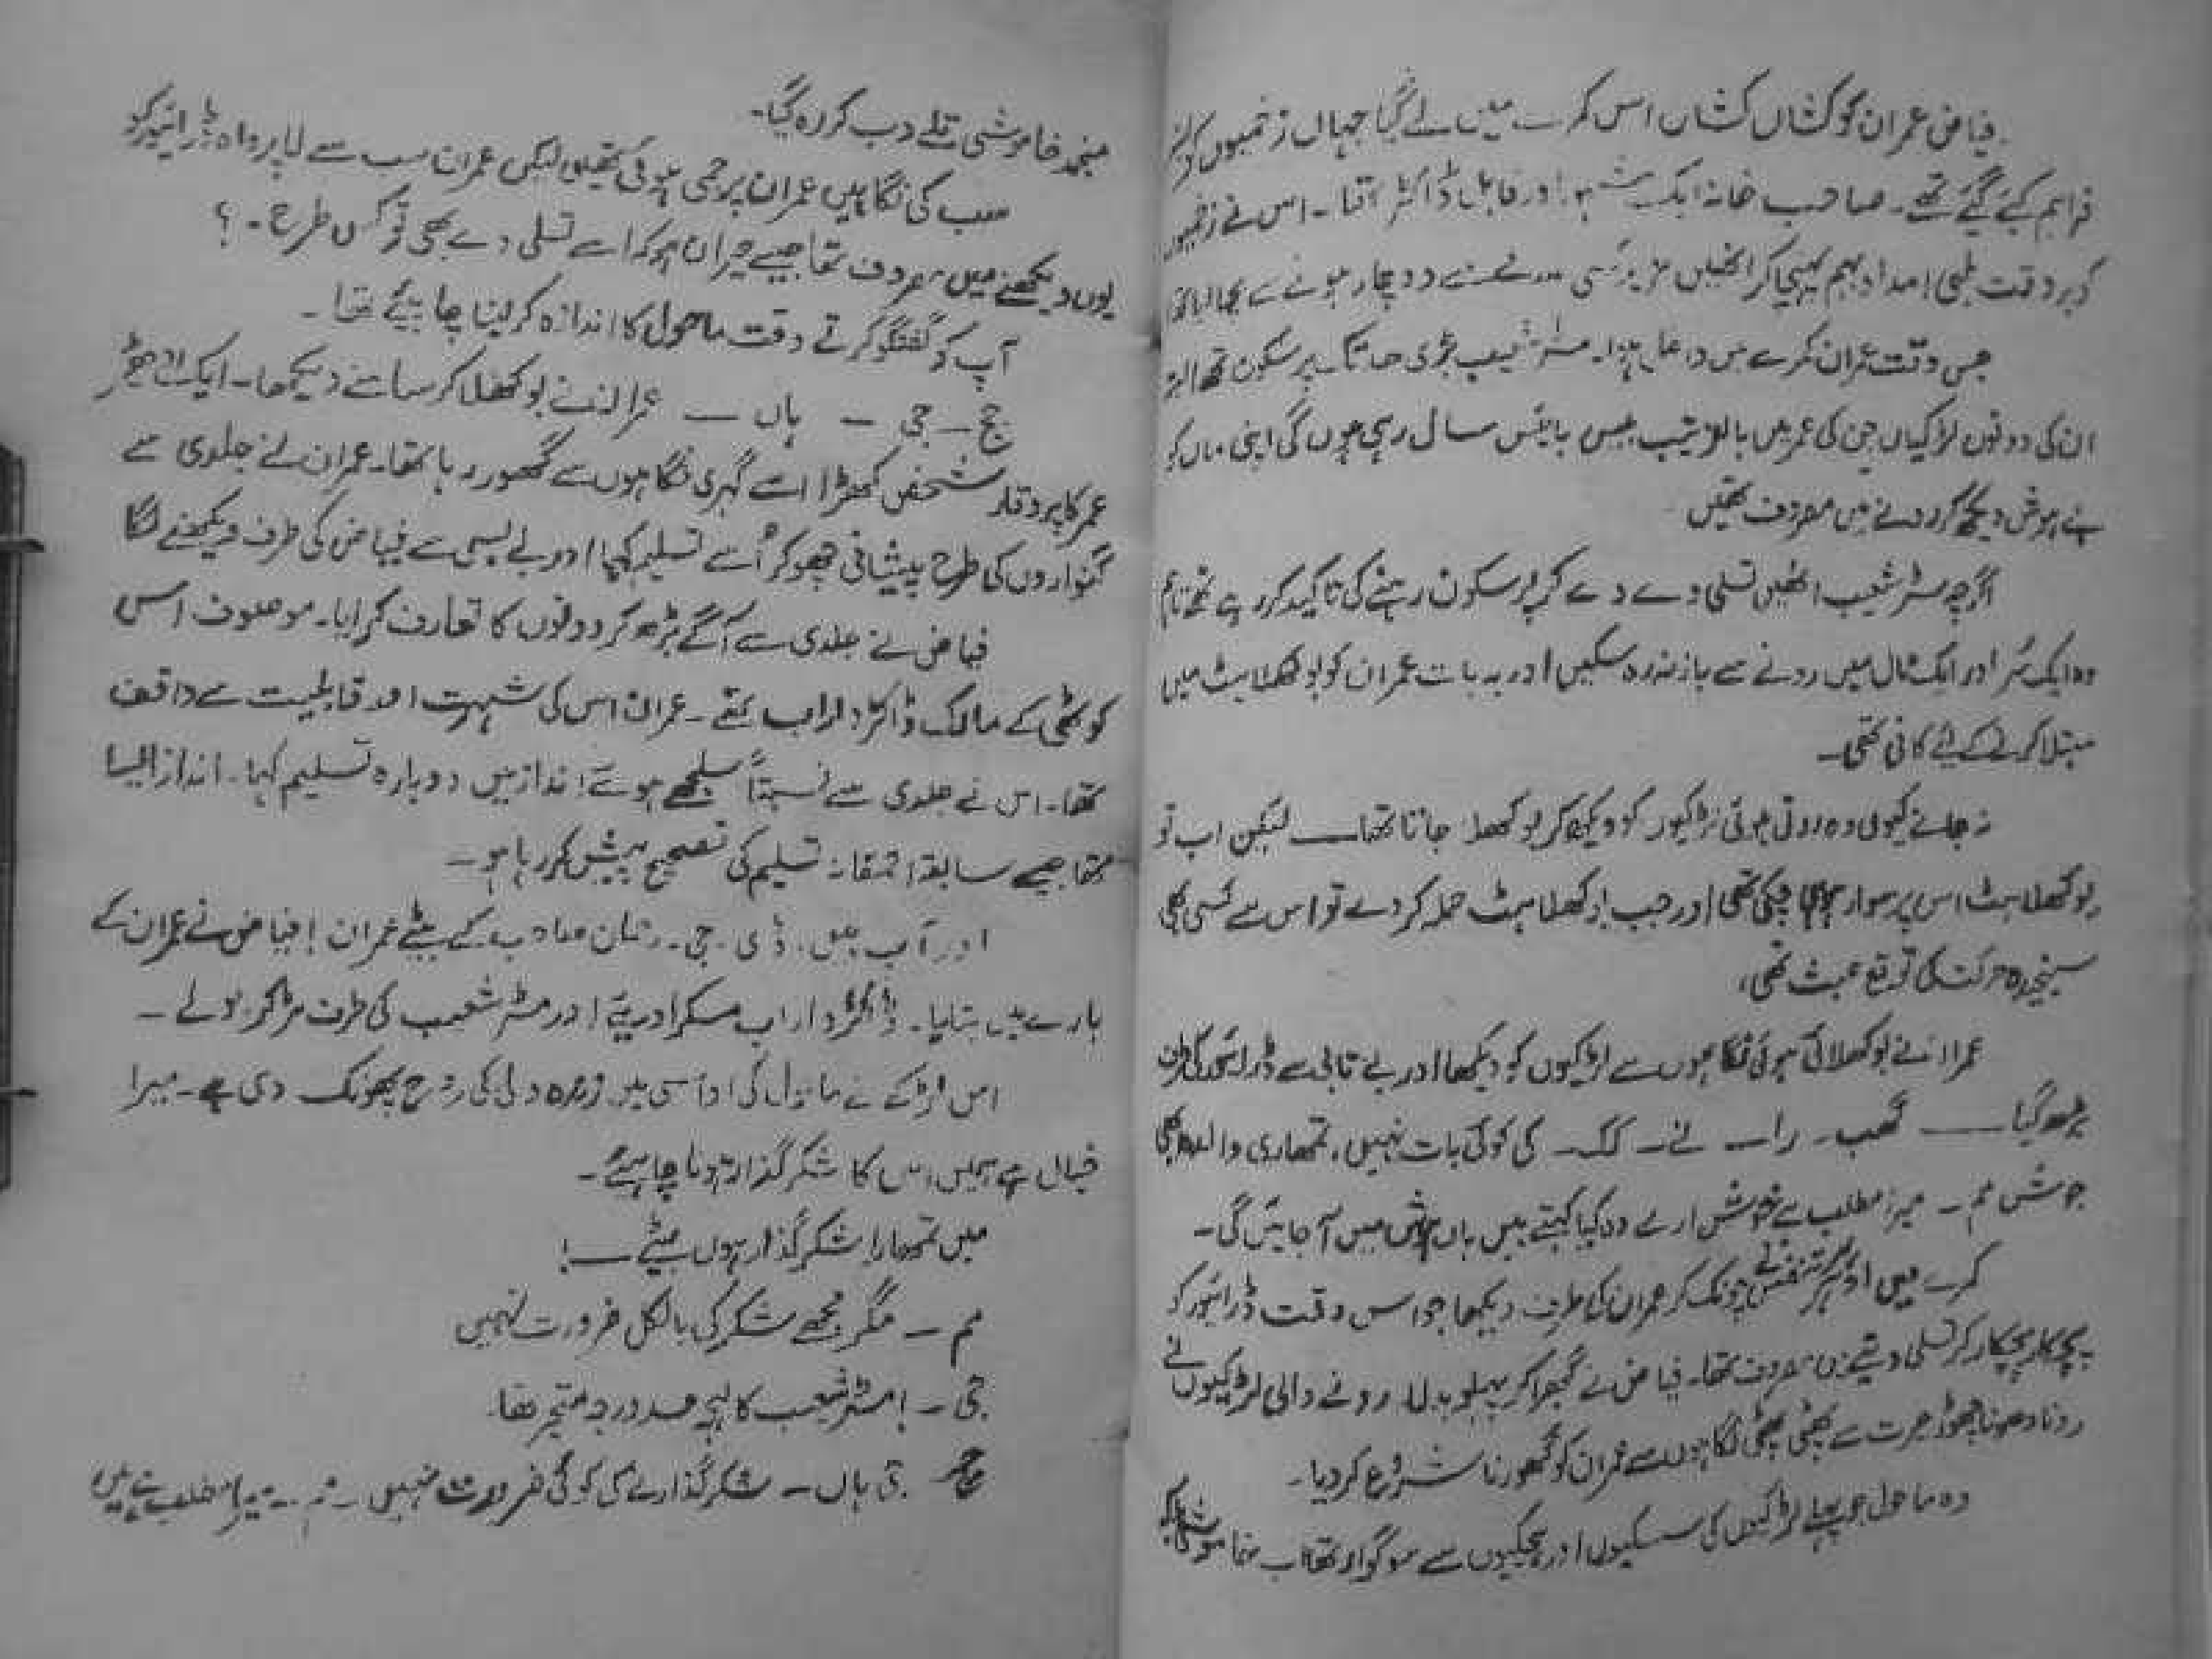 فیاض عمران کو کشاں کشاں اس کمرے میں لے گیا جہاں زخمیوں کو
فراہم کیے گئے تھے۔ صاحب خانہ ایک مشہور اور قابل ڈاکٹر تھا۔ اس نے زخمیوں
کو بر وقت طبی امداد بہم پہنچا کر انھیں مزید کسی سے دوچار ہونے سے بچا لیا تھا
جس وقت عمران کمرے میں داخل ہوا۔ مسٹر شعیب بڑی حد تک پرسکون تھے البتہ
ان کی دونوں لڑکیاں جن کی عمریں بالترتیب بیس بائیس سال رہی ہوں گی اپنی ماں کو
بے ہوش دیکھ کر رونے میں مصروف تھیں
اگرچہ مسٹر شعیب انھیں تسلی دے دے کر پرسکون رہنے کی تاکید کر رہے تھے تاہم
وہ ایک سُر اور ایک تال میں رونے سے باز نہ رہ سکیں اور یہ بات عمران کو بوکھلاہٹ میں
مبتلا کرنے کے لئے کافی تھی۔
نہ جانے کیوں وہ روتی ہوئی لڑکیوں کو دیکھ کر بوکھلا جاتا تھا۔ لیکن اب تو
بوکھلاہٹ اس پر سوار ہو چکی تھی اور جب بوکھلاہٹ حملہ کر دے تو اس سے کسی بھی
سنجیدہ حرکت کی توقع عبث تھی،
عمران نے بوکھلائی ہوئی نگاہوں سے لڑکیوں کو دیکھا اور بے تابی سے ڈرائیور کی طرف
بڑھ گیا ـــ گھب۔ را۔ نے۔ کک۔ کی کوئی بات نہیں، تمھاری والدہ ابھی
جوش مم۔ میرا مطلب ہے خوش ارے وہ کیا کہتے ہیں ہاں ہوش میں آجائیں گی۔
کمرے میں ہر متنفس نے چونک کر عمران کی طرف دیکھا جو اس وقت ڈرائیور کو
پچکار پچکار کر تسلی دینے میں مصروف تھا۔ فیاض نے گھبرا کر پہلو بدلا۔ رونے والی لڑکیوں نے
رونا دھونا چھوڑ حیرت سے پھٹی پھٹی نگاہوں سے عمران کو گھورنا شروع کر دیا۔
وہ ماحول جو پہلے لڑکیوں کی سسکیوں اور ہچکیوں سے سوگوار تھا اب
منجمد خاموشی تلے دب کر رہ گیا۔
سب کی نگاہیں عمران پر جمی ہوئی تھیں لیکن عمران سب سے لاپرواہ ڈرائیور کو
یوں دیکھنے میں مصروف تھا جیسے حیران ہو کہ اسے تسلی دے بھی تو کس طرح۔ ؟
آپ کو گفتگو کرتے وقت ماحول کا اندازہ کر لینا چاہیئے تھا۔
جج۔ جی ۔ ہاں ۔ عمران نے بوکھلا کر سامنے دیکھا۔ ایک ادھیڑ
عمر کا پر وقار شخص کھڑا اسے گہری نگاہوں سے گھور رہا تھا۔ عمران نے جلدی سے
گنواروں کی طرح پیشانی چھو کر اُسے تسلیم کہا اور بے بسی سے فیاض کی طرف دیکھنے لگا
فیاض نے جلدی سے آگے بڑھ کر دونوں کا تعارف کرایا۔ موصوف اس
کوٹھی کے مالک ڈاکٹر داراب تھے۔ عمران اس کی شہرت اور قابلیت سے واقف
تھا۔ اس نے جلدی سے نسبتاً سلجھے ہوئے انداز میں دوبارہ تسلیم کہا۔ انداز ایسا
تھا جیسے سابقہ احمقانہ تسلیم کی تصحیح پیش کر رہا ہو۔
اور آپ ہیں، ڈی۔ جی۔ رحمان صاحب کے بیٹے عمران ! فیاض نے عمران کے
بارے میں بتایا۔ ڈاکٹر داراب مسکرا دیئے اور مسٹر شعیب کی طرف مڑ کر بولے۔
اس لڑکے نے ماحول کی اداسی میں زندہ دلی کی روح پھونک دی ہے۔ میرا
خیال ہے ہمیں اس کا شکر گذار ہونا چاہیئے۔
میں تمھارا شکر گذار ہوں بیٹے ۔!
مم۔ مگر مجھے شکر کی بالکل ضرورت نہیں
جی۔ ! مسٹر شعیب کا لہجہ حد درجہ متحیر تھا۔
جی ہاں۔ شکر گذارے کی کوئی ضرورت نہیں۔ میرا مطلب ہے میں